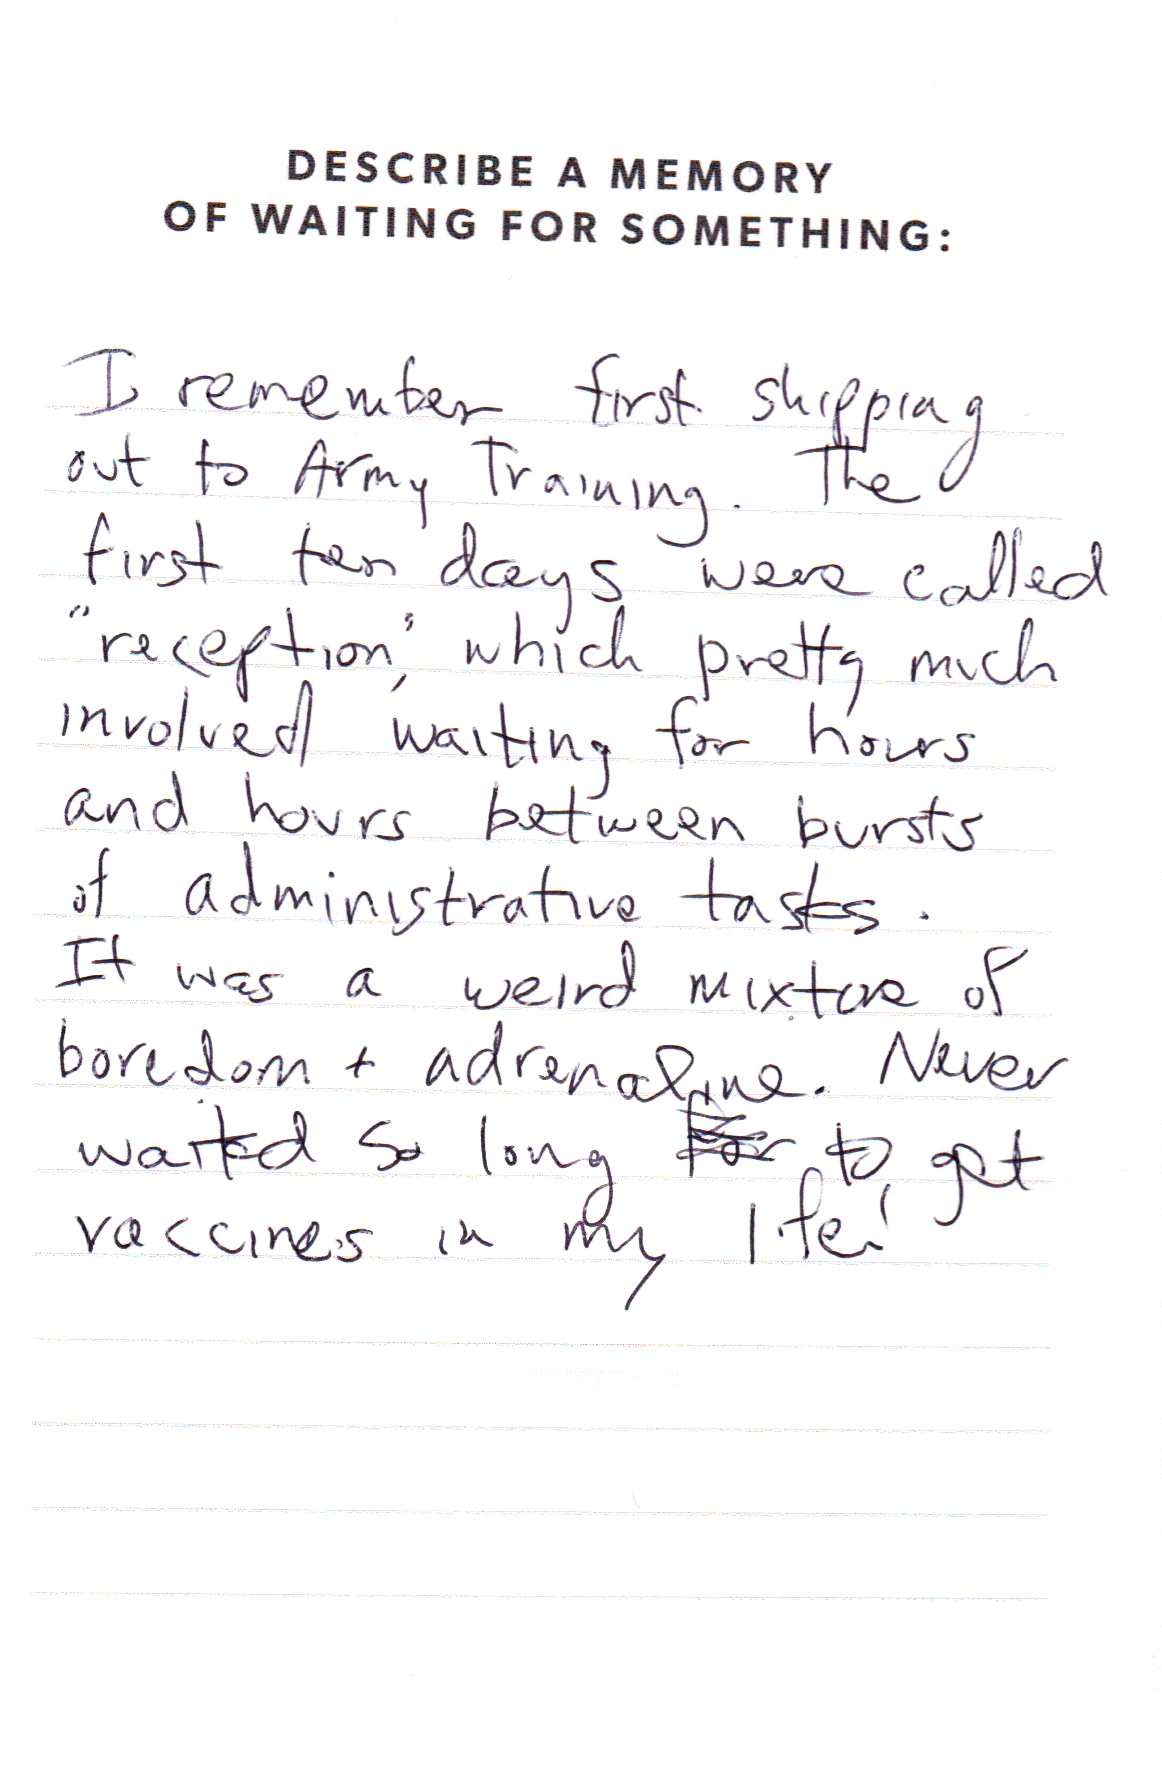 DESCRIBE A MEMORY
OF WAITING FOR SOMETHING:
I remember first shipping
out to Army Training. The
first ten days were called
"reception," which pretty much
involved waiting for hours
and hours between bursts
of administrative tasks.
It was a weird mixture of
boredom + adrenaline. Never
waited so long for to get
vaccines in my life!